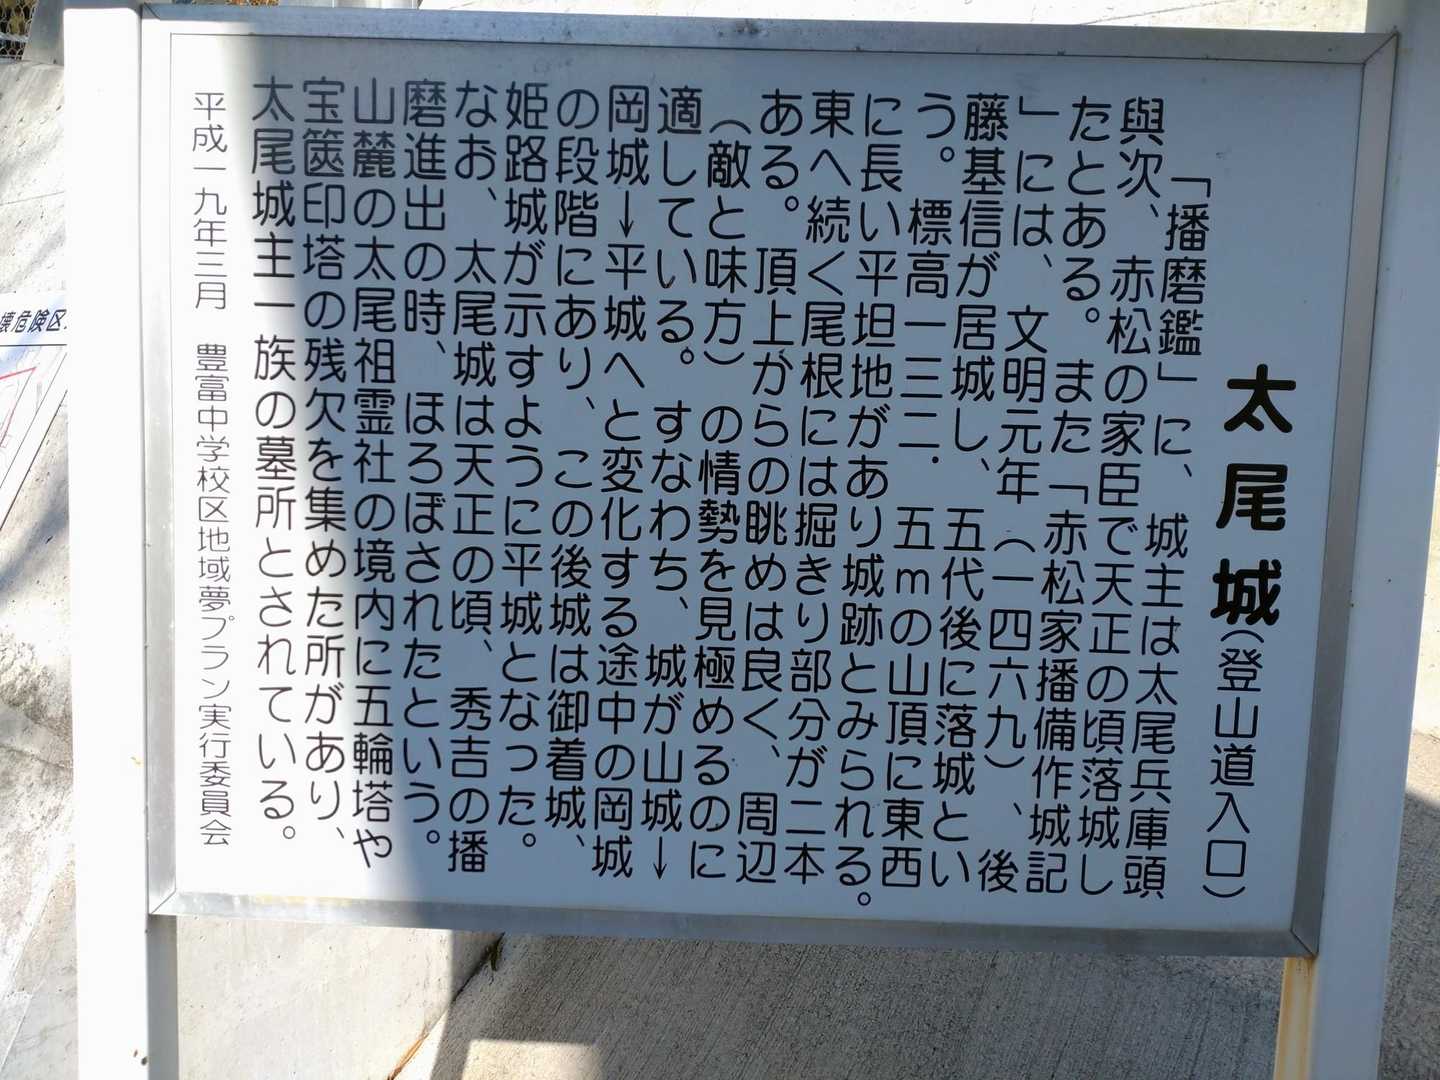 太尾城(登山道入口)
「播磨鑑」に、城主は太尾兵庫頭
與次、赤松の家臣で天正の頃落城し
たとある。また「赤松家播備作城記
」には、文明元年(一四六九)、後
藤基信が居城し、五代後に落城とい
う。標高一三二.五mの山頂に東西
に長い平坦地があり城跡とみられる。
東へ続く尾根には掘きり部分が二本
ある。頂上からの眺めは良く、周辺
(敵と味方)の情勢を見極めるのに
適している。すなわち、城が山城→
岡城→平城へと変化する途中の岡城
の段階にあり、この後城は御着城、
姫路城が示すように平城となった。
なお、太尾城は天正の頃、秀吉の播
磨進出の時、ほろぼされたという。
山麓の太尾祖霊社の境内に五輪塔や
宝篋印塔の残欠を集めた所があり、
太尾城主一族の墓所とされている。
平成一九年三月 豊富中学校区地域夢プラン実行委員会
壊危険区